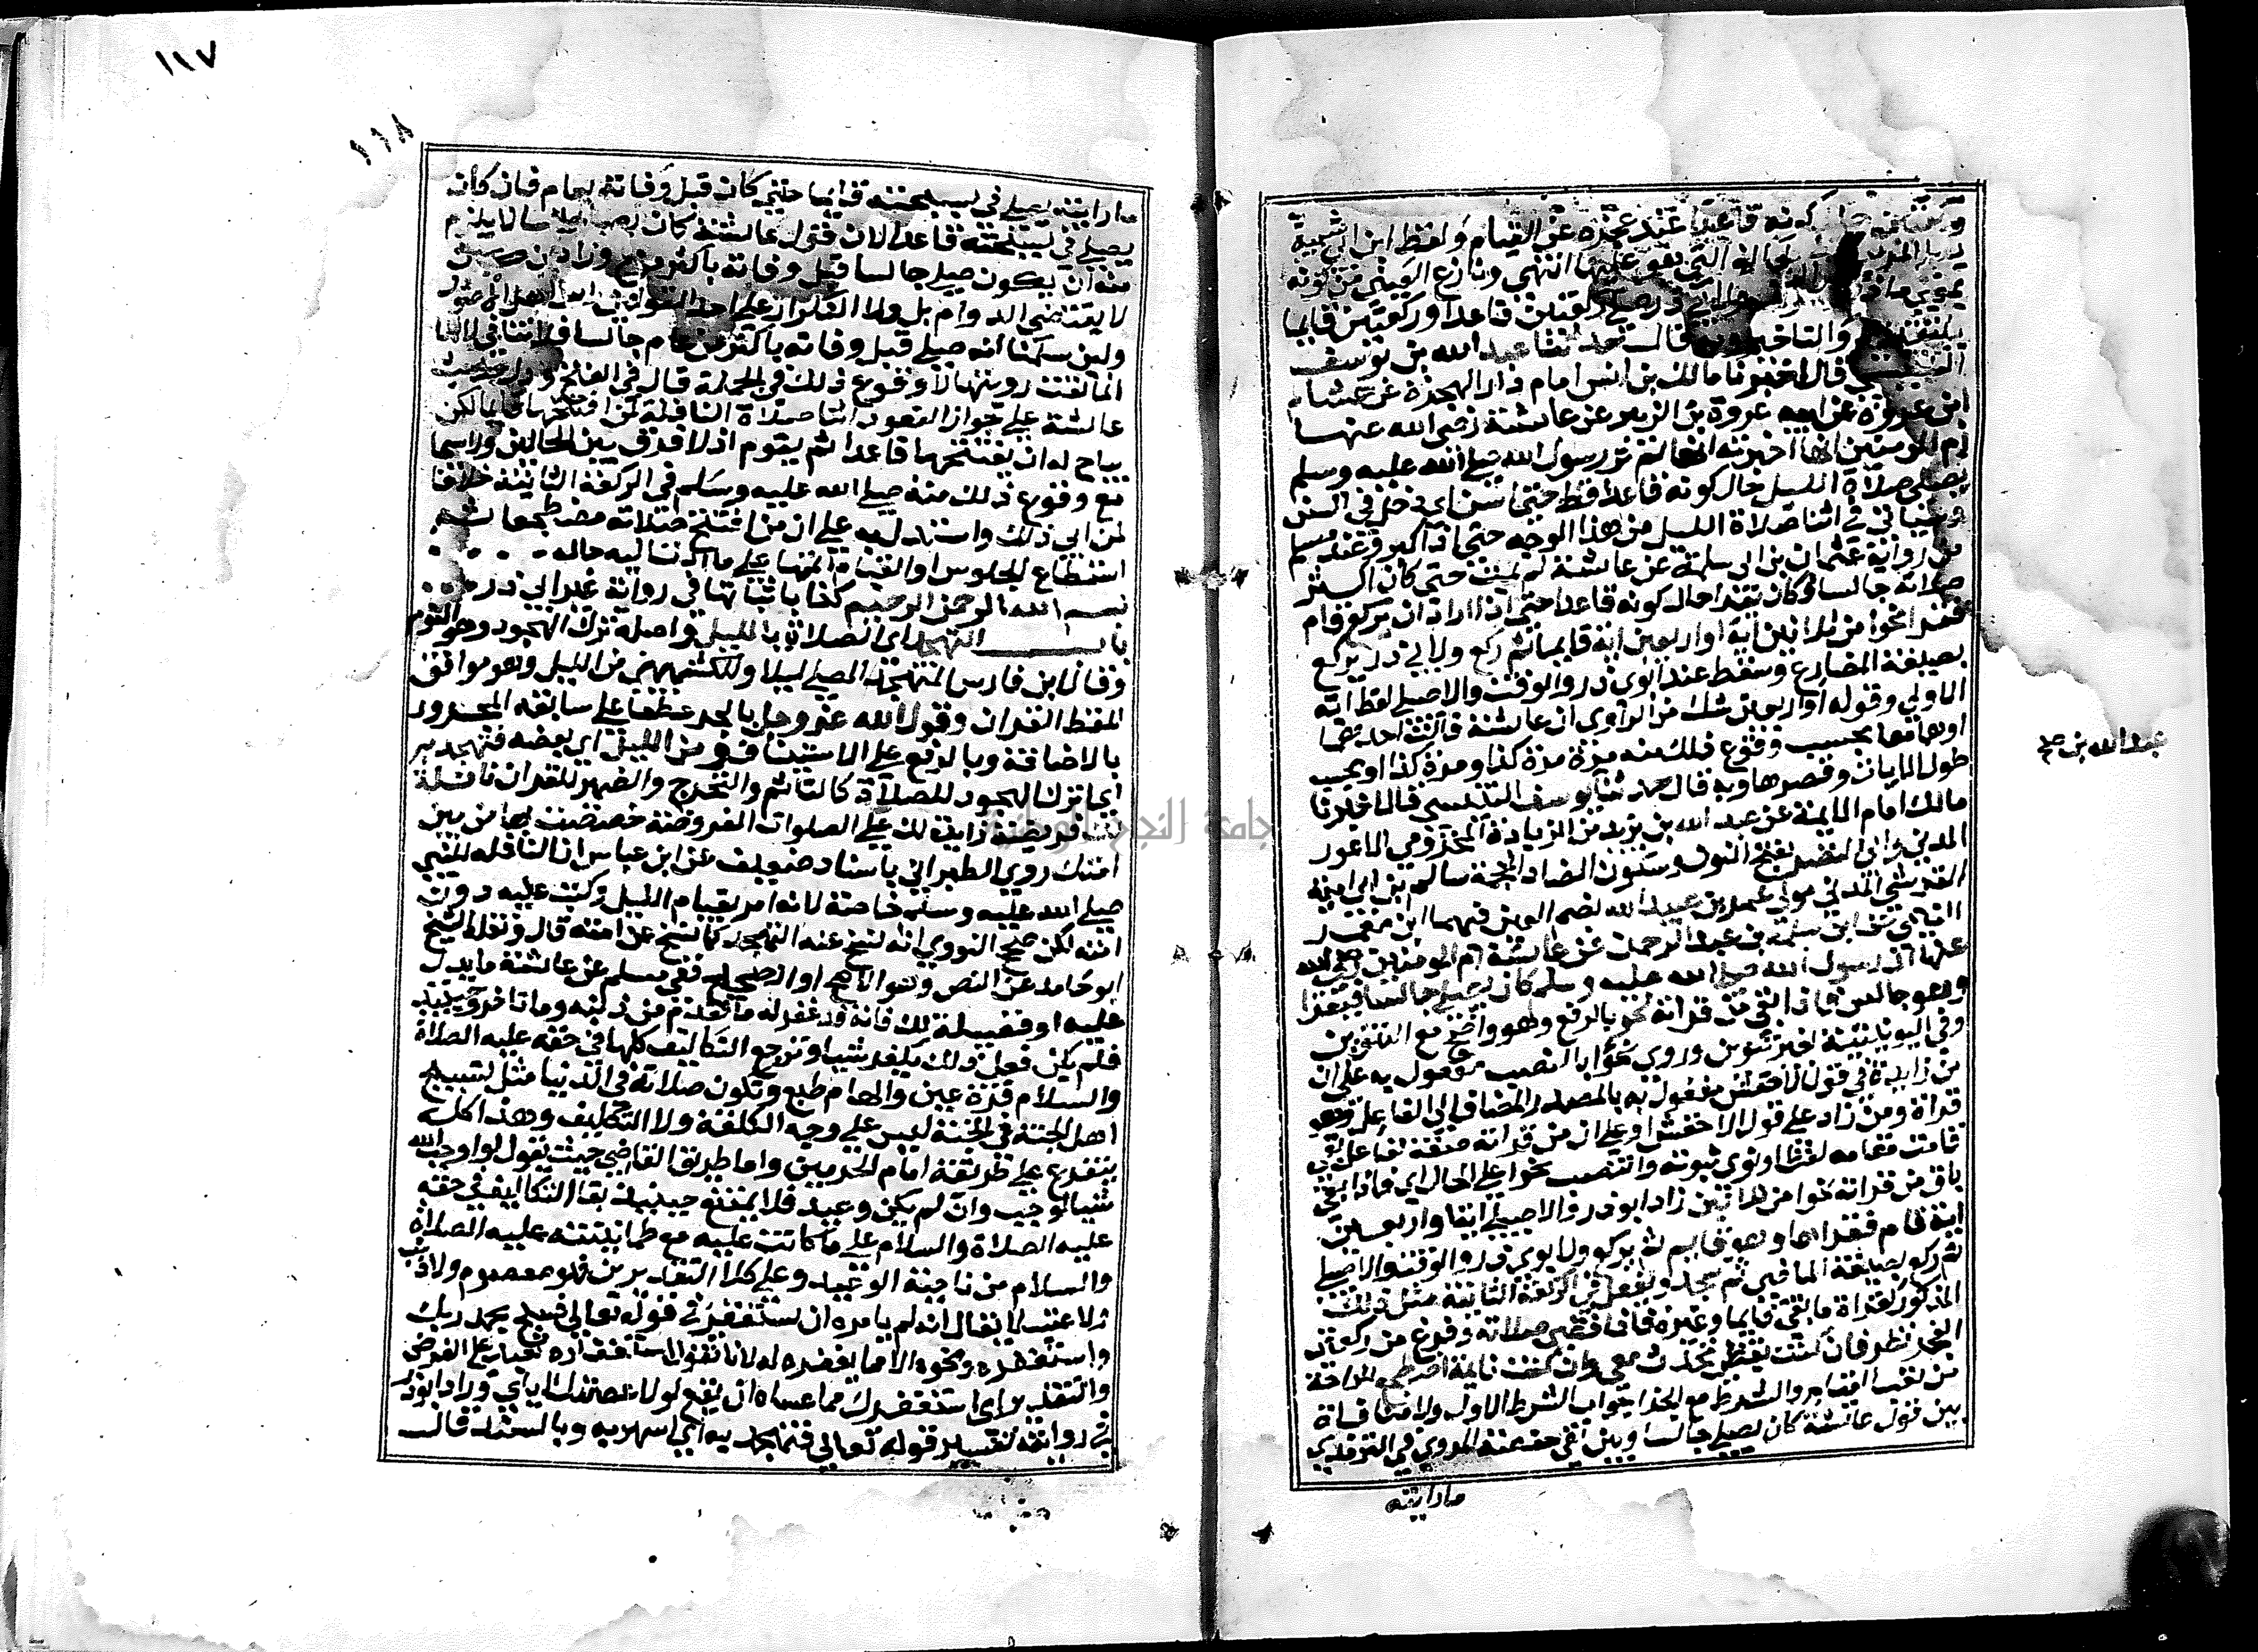 كونه قاعدا عند عجزه عن القيام ولفظ ابن ابي شيبة
انتهي ونازع العيني في كونه
ركعتين قاعدا وركعتين قايما
والتاخير وبه قال حدثنا عبد الله بن يوسف
قال اخبرنا مالك بن انس امام دار الهجرة عن هشام
ابن عروة عن ابيه عروة بن الزبير عن عائشة رضي الله عنها
ام المومنين انها اخبرته انها لم تر رسول الله صلي الله عليه وسلم
يصلي صلاة الليل حال كونه قاعدا قط حتي اسن اي دخل في السن
في اثنا صلاة الليل من هذا الوجه حتي اذا كبر وعند مسلم
من رواية عثمان بن ابي سلمة عن عائشة لم يمت حتي كان اكثر
صلاته جالسا وكان يقرا حال كونه قاعدا حتي اذا اراد ان يركع قام
فقرا نحوا من ثلاثين اية او اربعين اية قايما ثم ركع ولابي ذر يركع
بصيغة المضارع وسقط عند ابوي ذر والوقت والاصيلي لفظ اية
الاولي وقوله او اربعين شك من الراوي ان عائشة قالت احدهما
او هما معا بحسب وقوع ذلك منه مرة مرة كذا ومرة كذا او بحسب
طول الايات وقصرها وبه قال حدثنا يوسف التنيسي قال اخبرنا
عبد الله بن صح
مالك امام الايمة عن عبد الله بن يزيد من الزيادة المخزومي الاعور
المدني وابي النضر بفتح النون وسكون الضاد المعجمة سالم بن ابي امية
القرشي المدني مولي عمر بن عبيد الله بضم العين فيهما ابن معمر
التيمي عن ابي سلمة بن عبد الرحمن عن عائشة ام المومنين رضي الله
عنها ان رسول الله صلي الله عليه وسلم كان يصلي جالسا فيقرا
وهو جالس فاذا بقي من قراته نحو بالرفع وهو واضح مع التنوين
وفي اليونينية بغير تنوين وروي نحوا بالنصب مفعول به علي ان
من زايدة في قول الاخفش مفعول به بالمصدر المضاف الي الفاعل وهو
قراة ومن زاد علي قول الاخفش او علي ان من قراته صفة لفاعل بقي
قامت مقامه لفظا ونوي ثبوته وانتصب نحوا علي الحال اي فاذا بقي
باق من قراته نحوا من ثلاثين زاد ابو ذر والاصيلي اية او اربعين
اية قام فقراها وهو قايم ثم يركع ولابوي ذر والوقت والاصيلي
ثم ركع بصيغة الماضي ثم سجد ويفعل في الركعة الثانية مثل ذلك
المذكور كقراة ما بقي قايما وغيره فاذا قضي صلاته وفرغ من ركعتي
الفجر نظر فان كنت يقظي تحدث معي وان كنت نايمة اضطجع للراحة
من تعب القيام والشرط مع الجزا جواب الشرط الاول ولا منافاة
بين قول عائشة كان يصلي جالسا وبين نفي حفصة المروي في الترمذي
مارايته
١١٧
١١٨
ما رايته يصلي في سبحته قاعدا حتي كان قبل وفاته بعام فكان
يصلي في سبحته قاعدا لان قول عائشة كان يصلي جالسا لا يلزم
منه ان يكون صلي جالسا قبل وفاته باكثر من عام
لا يقتضي الدوام بل ولا التكرار علي احد القولين عند اهل الاصول
ولين سلمنا انه صلي قبل وفاته باكثر من عام جالسا فلا تنافي لانها
انما نفت رويتها لا وقوع ذلك في الجملة قال في الفتح ودل حديث
عائشة علي جواز القعود اثنا صلاة النافلة لمن افتتحها قايما كما
يباح له ان يفتتحها قاعدا ثم يقوم اذ لا فرق بين الحالين ولا سيما
مع وقوع ذلك منه صلي الله عليه وسلم في الركعة الثانية خلافا
لمن ابي ذلك واستدل به علي ان من افتتح صلاته مضطجعا ثم
استطاع الجلوس او القيام اتمها علي ما ادت اليه حاله
بسم الله الرحمن الرحيم كذا باثباتها في رواية غير ابي ذر
باب التهجد اي الصلاة بالليل واصله ترك الهجود وهو النوم
وقال ابن فارس المتهجد المصلي ليلا وللكشميهني من الليل وهو موافق
للفظ القران وقوله الله عز وجل بالجر عطفا علي سابقه المجرور
بالاضافة وبالرفع علي الاستيناف ومن الليل اي بعضه فتهجد به
اي اترك الهجود للصلاة كالتاثم والتحرج والضمير للقران نافلة
لك فريضة زايدة لك علي الصلوات المفروضة خصصت بها من بين
امتك روي الطبراني باسناد ضعيف عن ابن عباس ان النافلة للنبي
صلي الله عليه وسلم خاصة لانه امر بقيام الليل وكتب عليه دون
امته لكن صحح النووي انه نسخ عنه التهجد كما نسخ عن امته قال ونقله الشيخ
ابو حامد عن النص وهو الاصح او الصحيح ففي مسلم عن عائشة ما يدل
عليه او فضيلة لك فانه قد غفر له ما تقدم من ذنبه وما تاخر وحينيذ
فلم يكن فعل ذلك يكفر شيا وترجع التكاليف كلها في حقه عليه الصلاة
والسلام قرة عين والهام طبع وتكون صلاته في الدنيا مثل تسبيح
اهل الجنة في الجنة ليس علي وجه الكلفة ولا التكليف وهذا كله
يتفرع علي طريقة امام الحرمين واما طريق القاضي حيث يقول لو اوجب الله
شيا لوجب وان لم يكن وعيد فلا يمتنع حينيذ بقا التكاليف في حقه
عليه الصلاة والسلام علي ما كانت عليه مع طمانينته عليه الصلاة
والسلام من ناحية الوعيد وعلي كلا التقديرين فهو معصوم ولا ذنب
ولا عتب لا يقال انه لم يامره ان يستغفر في قوله تعالي فسبح بحمد ربك
واستغفره ونحوه الا مما يغفره له لانا نقول استغفاره تعبد علي الفرض
والتقدير اي استغفرك مما عساه ان يقع لولا عصمتك اياي وزاد ابو ذر
في روايته تفسير قوله تعالي فتهجد به اي اسهر به وبالسند قال